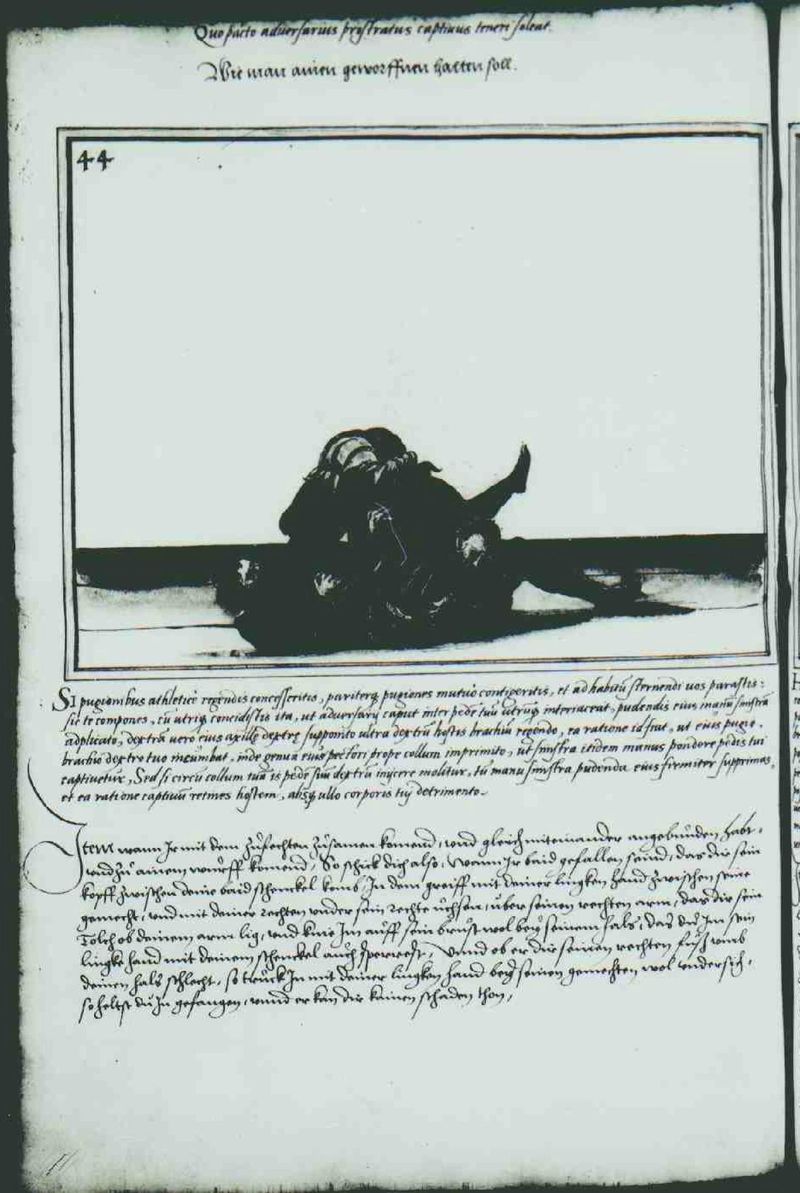 Quo pacto adversarius prostratus captiuus teneri soleat.
Wie man ainen geworffnen halten soll.
44
SI pugionibus athleticè regendis concesseritis, pariterq; pugiones mutuò contigeritis, et ad habitũ sternendi uos parastis:
sic te compones, cũ utriq; concidistis ita, ut adversarij caput inter pedẽ tuũ utrũq; interiaceat, pudendis eius manũ sinistrã
adplicato, dextrã vero eius axillę dextrę supponito ultra dextrũ hostis brachiũ regendo, ea ratione id fiat, ut eius pugio
brachio dextro tuo incumbat, inde genua eius pectori prope collum imprimito, ut sinistra itidem manus pondore pedis tui
captiuetur, Sed si circũ collum tuũ is pedẽ suũ dextrũ inijcere molitur, tũ manu sinistra pudenda eius firmiter supprimas,
et ea ratione captiuũ retines hostem, absq; ullo corporis tuj detrimento.
Item wann Ir mit dem zufechten zusamen komend, vnd gleich miteinander angebunden habt,
vnd zu ainen wurff komend, So schick dich also, Wann Ir baid gefallen seind, das dir sein
kopff zwischen deine baid schenckel kom, In dem greiff mit deiner lingken hand zwischen seine
gemecht, vnd mit deiner rechten vnder sein rechte uchsen, uber seinen rechten arm, das dir sein
Tolch ob deinem arm lig, vnd knie Im auff sein brust wol bey seinem hals, das du Im sein
lingke hand mit deinem schenckel auch sperrest, Vnnd ob er dir seinen rechten fuß vmb
deinen hals schlecht, so truck In mit deiner lingken hand bey seinen gemechten wol vndersich,
so heltst du In gefangen, vnnd er kan dir kainen schaden thon,